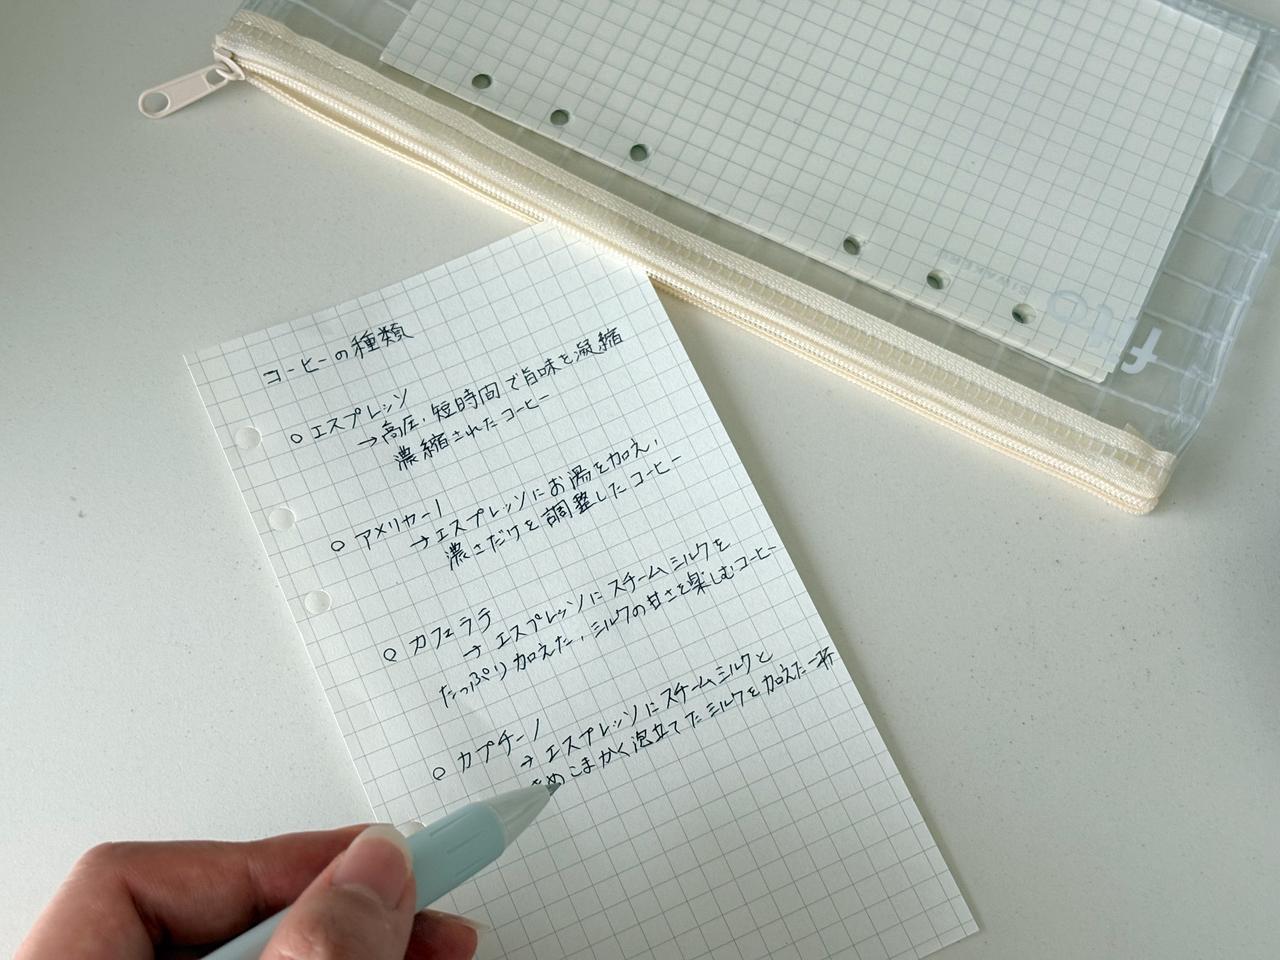 コーヒーの種類
○ エスプレッソ
→高圧、短時間で旨味を凝縮
濃縮されたコーヒー
○ アメリカーノ
→エスプレッソにお湯を加え、
濃さだけを調整したコーヒー
○ カフェラテ
→ エスプレッソにスチームミルクを
たっぷり加えた、ミルクの甘さを楽しむコーヒー
○ カプチーノ
→ エスプレッソにスチームミルクと
きめこまかく泡立てたミルクを加えた一杯